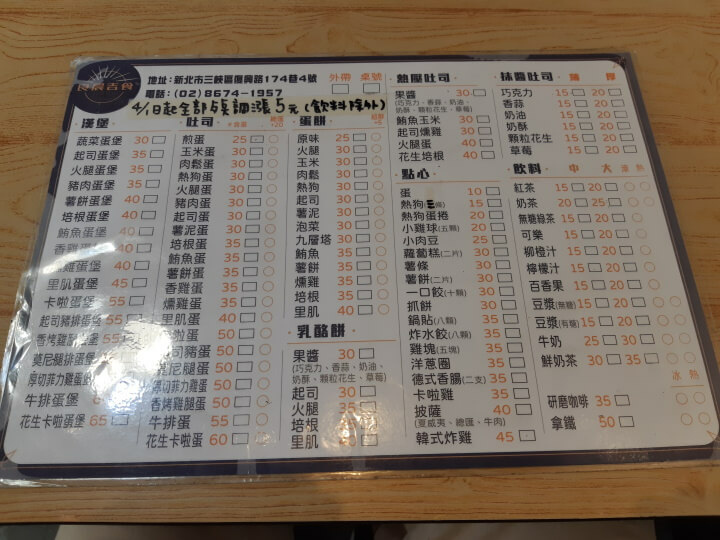 良辰吉食
地址：新北市三峽區復興路174巷4號
電話：(02)8674-1957
外帶 桌號
4/1日起全部餐調漲5元(飲料除外)
漢堡
蔬菜蛋堡 30
起司蛋堡 35
火腿蛋堡 35
豬肉蛋堡 40
薯餅蛋堡 40
培根蛋堡 40
鮪魚蛋堡 40
香雞蛋堡 40
燻雞蛋堡 40
里肌蛋堡 45
卡啦蛋堡 55
起司豬排蛋堡 55
香烤雞腿蛋堡 55
莫尼腿排蛋堡
厚切菲力雞蛋
牛排蛋堡
花生卡啦蛋堡 65
吐司
煎蛋 25
玉米蛋 30
肉鬆蛋 30
熱狗蛋 30
火腿蛋 30
豬肉蛋 30
起司蛋 30
薯泥蛋 30
培根蛋 35
鮪魚蛋 35
薯餅蛋 35
香雞蛋 35
燻雞蛋 35
里肌蛋 40
卡啦蛋 50
起司豬蛋 50
莫尼腿蛋 50
厚切菲力蛋 50
香烤雞腿蛋 50
牛排蛋 55
花生卡啦蛋 60
蛋餅
原味 25
火腿 30
玉米 30
肉鬆 30
熱狗 30
起司 30
薯泥 30
泡菜 30
九層塔 30
鮪魚 35
薯餅 35
燻雞 35
培根 35
里肌 40
乳酪餅
果醬 30
(巧克力、香蒜、奶油、
奶酥、顆粒花生、草莓)
起司 30
火腿 35
培根
里肌 40
熱壓吐司
果醬 30
(巧克力、香蒜、奶油、
奶酥、顆粒花生、草莓)
鮪魚玉米 30
起司燻雞 30
火腿蛋 40
花生培根 40
點心
蛋 10
熱狗(三顆) 15
熱狗蛋捲 20
小雞球(五顆) 25
小肉豆 25
蘿蔔糕(二片) 30
薯條 30
薯餅(二片) 30
一口餃(十顆) 30
抓餅 30
鍋貼(八顆) 35
炸水餃(八顆) 35
雞塊(五塊) 35
洋蔥圈 35
德式香腸(二支) 35
卡啦雞 35
披薩 40
(夏威夷、總匯、牛肉)
韓式炸雞 45
抹醬吐司 薄 厚
巧克力 15 20
香蒜 15 20
奶油 15 20
奶酥 15 20
顆粒花生 15 20
草莓 15 20
飲料 中 大 凍 熱
紅茶 15 20
奶茶 20 25
無糖綠茶 15 20
可樂 15 20
柳橙汁 15 20
檸檬汁 15 20
百香果 15 20
豆漿(無糖) 15 20
豆漿(有糖) 15 20
牛奶 25 30
鮮奶茶 30 35
冰 熱
研磨咖啡 35
拿鐵 50